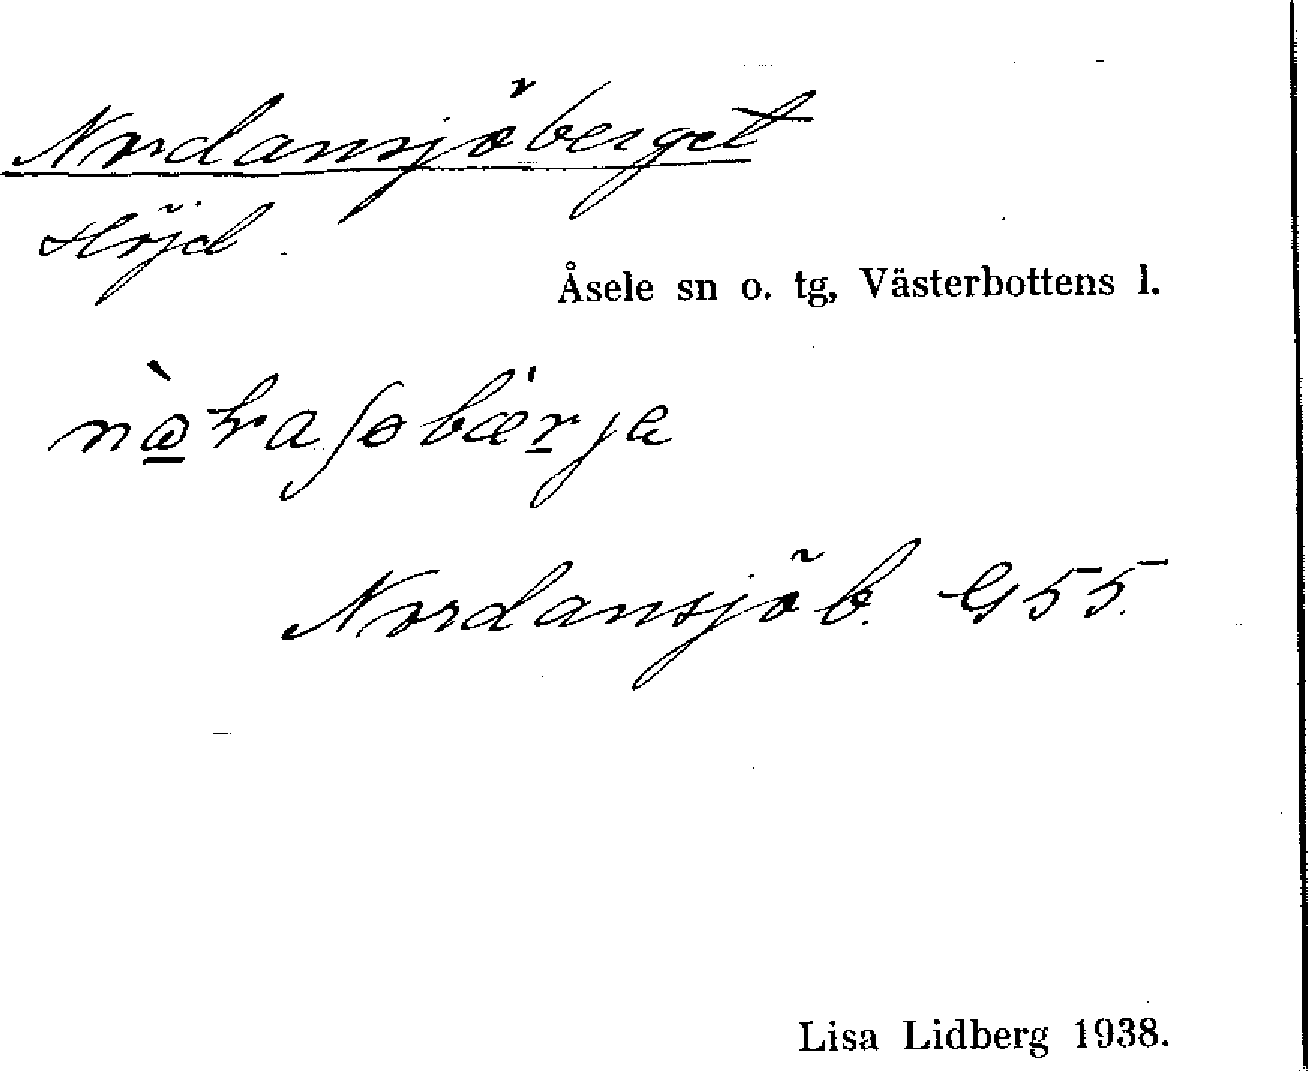 Nordansjöberget
Höjd.
Åsele sn o. tg, Västerbottens l.
Nordansjöb. G 55.
Lisa Lidberg 1938.